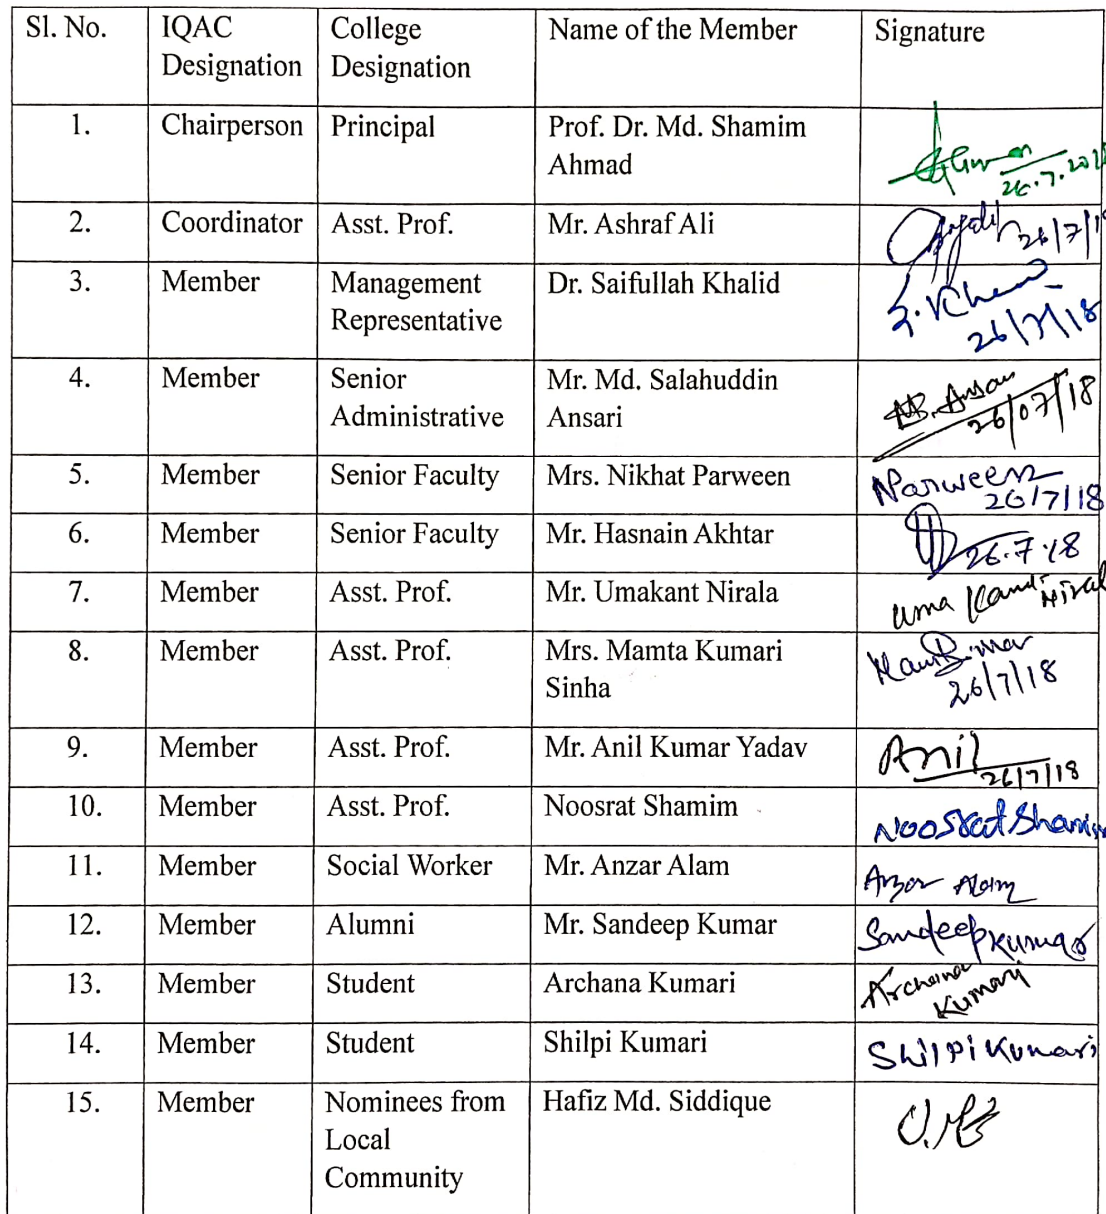 Sl. No. IQAC Designation College Designation Name of the Member Signature
1. Chairperson Principal Prof. Dr. Md. Shamim Ahmad 26.7.2018
2. Coordinator Asst. Prof. Mr. Ashraf Ali 26/7/18
3. Member Management Representative Dr. Saifullah Khalid 26/7/18
4. Member Senior Administrative Mr. Md. Salahuddin Ansari 26/07/18
5. Member Senior Faculty Mrs. Nikhat Parween NParween 26/7/18
6. Member Senior Faculty Mr. Hasnain Akhtar 26.7.18
7. Member Asst. Prof. Mr. Umakant Nirala Uma Kant Niral
8. Member Asst. Prof. Mrs. Mamta Kumari Sinha 26/7/18
9. Member Asst. Prof. Mr. Anil Kumar Yadav Anil 26/7/18
10. Member Asst. Prof. Noosrat Shamim Noosrat Shamim
11. Member Social Worker Mr. Anzar Alam Anzar Alam
12. Member Alumni Mr. Sandeep Kumar Sandeep Kumar
13. Member Student Archana Kumari Archana Kumari
14. Member Student Shilpi Kumari Shilpi Kumari
15. Member Nominees from Local Community Hafiz Md. Siddique